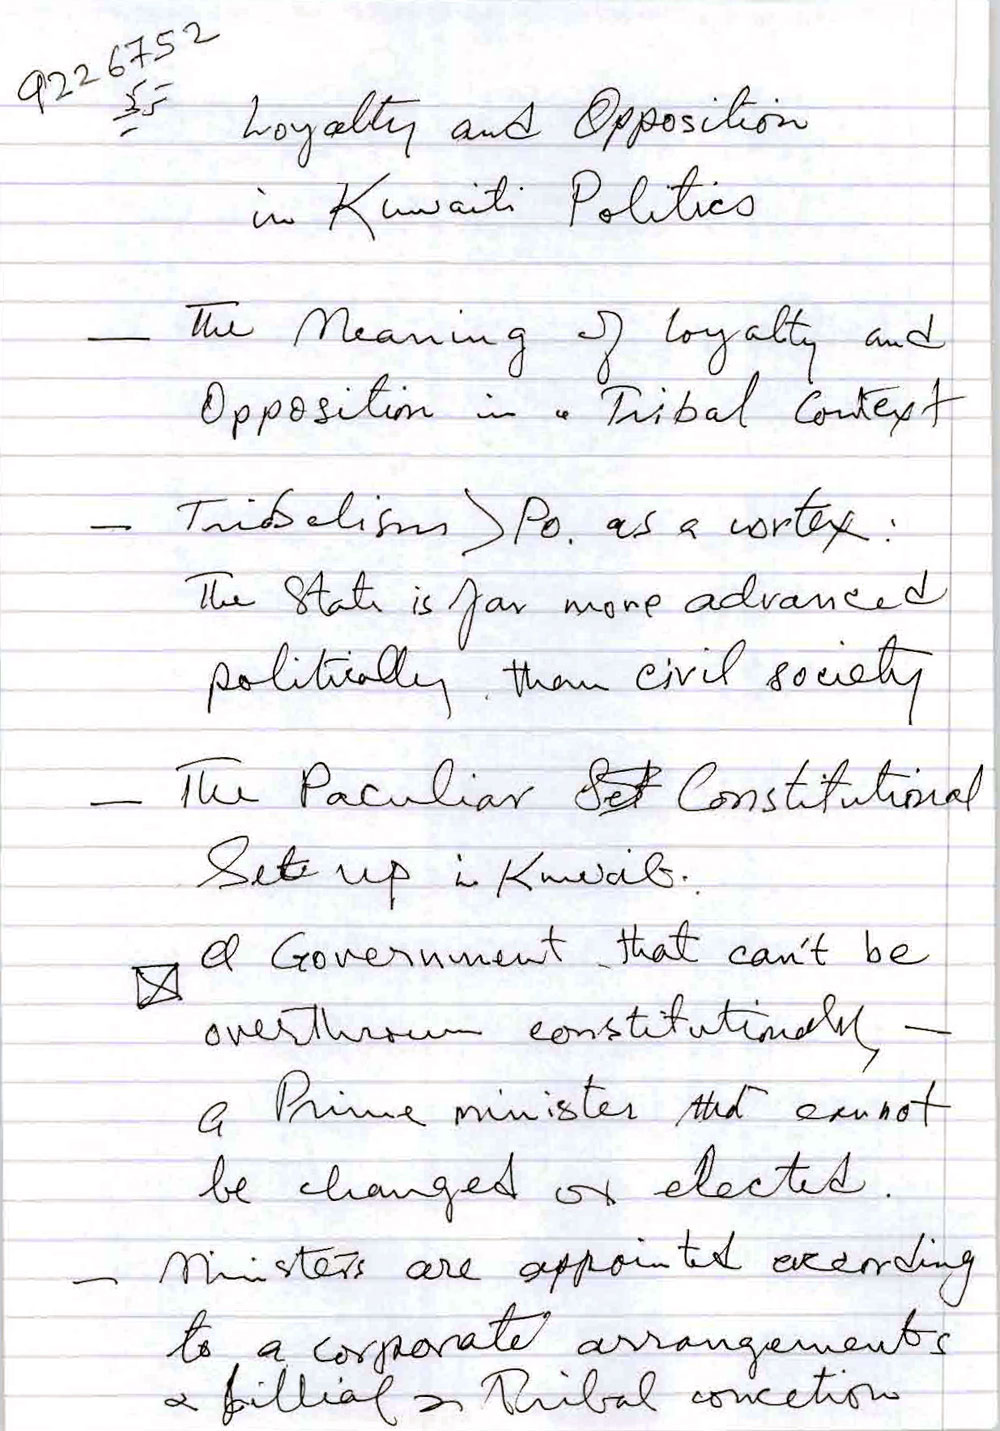 9226752
Loyalty and Opposition
in Kuwaiti Politics
— The Meaning of loyalty and
Opposition in a Tribal Context
— Tribalism > Po. as a vortex :
The State is far more advanced
politically than civil society
— The Paculiar Set Constitutional
Set up in Kuwait.
A Government that can't be
overthrown constitutionally —
a Prime minister that cannot
be changed or elected.
— Ministers are appointed according
to a corporate arrangements
fillial Tribal concetion